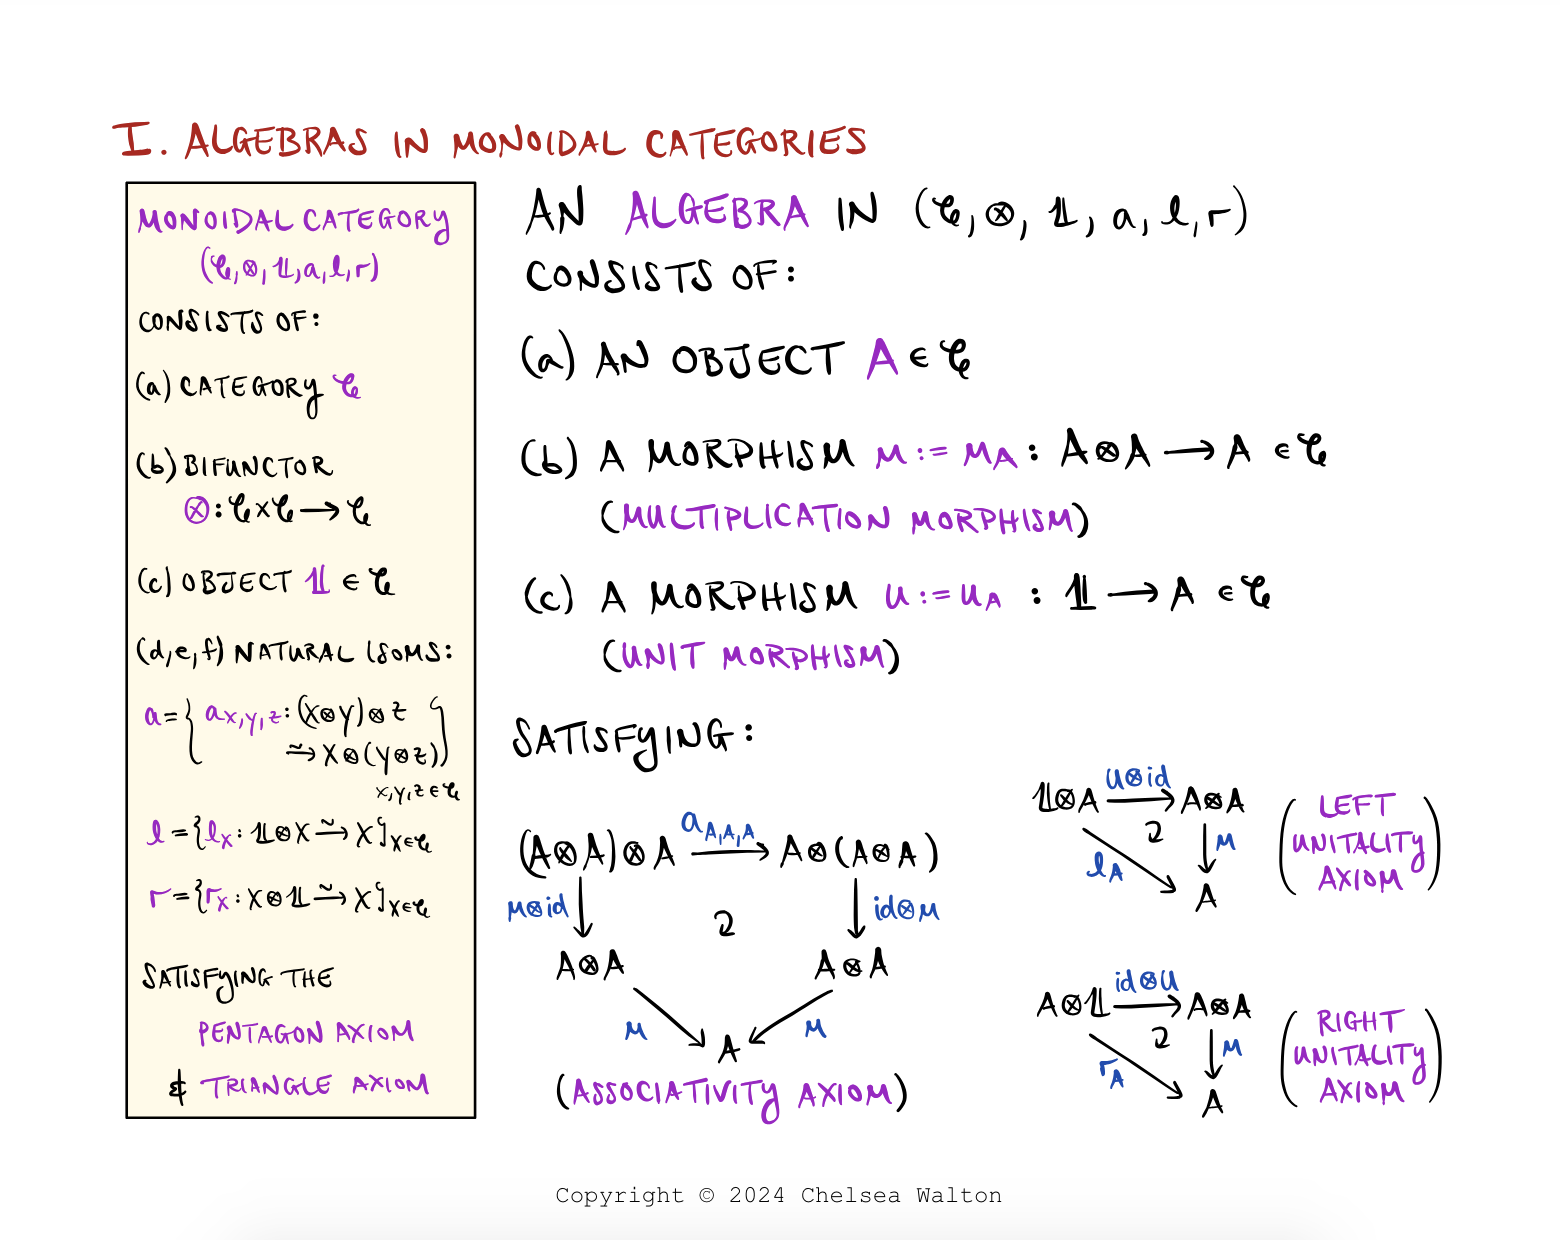 I. ALGEBRAS IN MONOIDAL CATEGORIES
MONOIDAL CATEGORY
(𝒞, ⊗, 𝟙, a, l, r)
CONSISTS OF:
(a) CATEGORY 𝒞
(b) BIFUNCTOR
⊗ : 𝒞 × 𝒞 ⟶ 𝒞
(c) OBJECT 𝟙 ∈ 𝒞
(d,e,f) NATURAL ISOMS:
a = { a_{X,Y,Z} : (X⊗Y)⊗Z
⥲ X⊗(Y⊗Z) }
X,Y,Z ∈ 𝒞
l = { l_X : 𝟙⊗X ⥲ X }_{X∈𝒞}
r = { r_X : X⊗𝟙 ⥲ X }_{X∈𝒞}
SATISFYING THE
PENTAGON AXIOM
& TRIANGLE AXIOM
AN ALGEBRA IN (𝒞, ⊗, 𝟙, a, l, r)
CONSISTS OF:
(a) AN OBJECT A ∈ 𝒞
(b) A MORPHISM m := m_A : A⊗A ⟶ A ∈ 𝒞
(MULTIPLICATION MORPHISM)
(c) A MORPHISM u := u_A : 𝟙 ⟶ A ∈ 𝒞
(UNIT MORPHISM)
SATISFYING:
a_{A,A,A}
(A⊗A)⊗A ⟶ A⊗(A⊗A)
m⊗id
id⊗m
A⊗A
A⊗A
m
m
A
(ASSOCIATIVITY AXIOM)
u⊗id
𝟙⊗A ⟶ A⊗A
m
l_A
A
(LEFT
UNITALITY
AXIOM)
id⊗u
A⊗𝟙 ⟶ A⊗A
m
r_A
A
(RIGHT
UNITALITY
AXIOM)
Copyright © 2024 Chelsea Walton